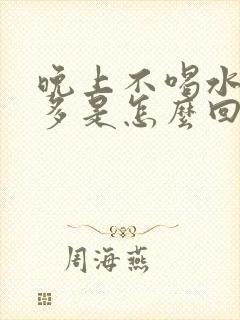 晚上不喝水
多是怎麼回
周海燕